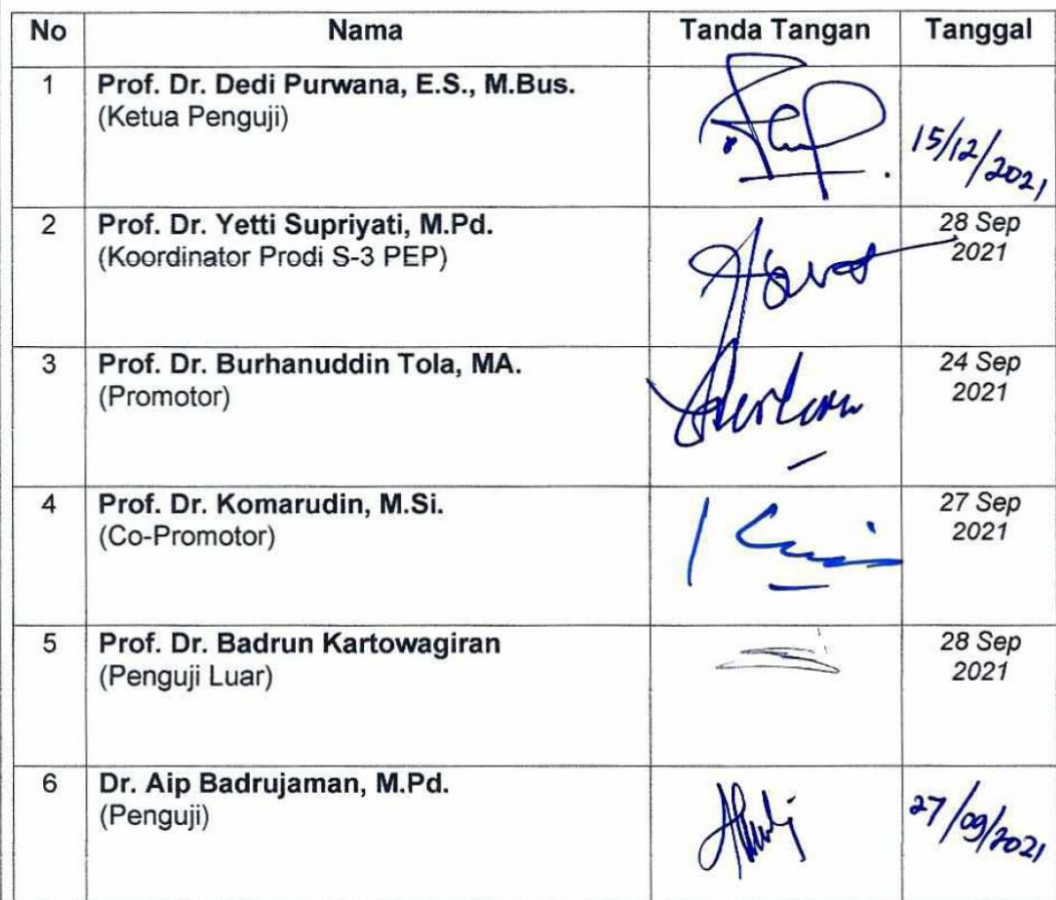 No Nama Tanda Tangan Tanggal
1 Prof. Dr. Dedi Purwana, E.S., M.Bus.
(Ketua Penguji)
15/12/2021
2 Prof. Dr. Yetti Supriyati, M.Pd. 28 Sep
(Koordinator Prodi S-3 PEP) 2021
3 Prof. Dr. Burhanuddin Tola, MA. 24 Sep
(Promotor) 2021
4 Prof. Dr. Komarudin, M.Si. 27 Sep
(Co-Promotor) 2021
5 Prof. Dr. Badrun Kartowagiran 28 Sep
(Penguji Luar) 2021
6 Dr. Aip Badrujaman, M.Pd.
(Penguji) 27/09/2021